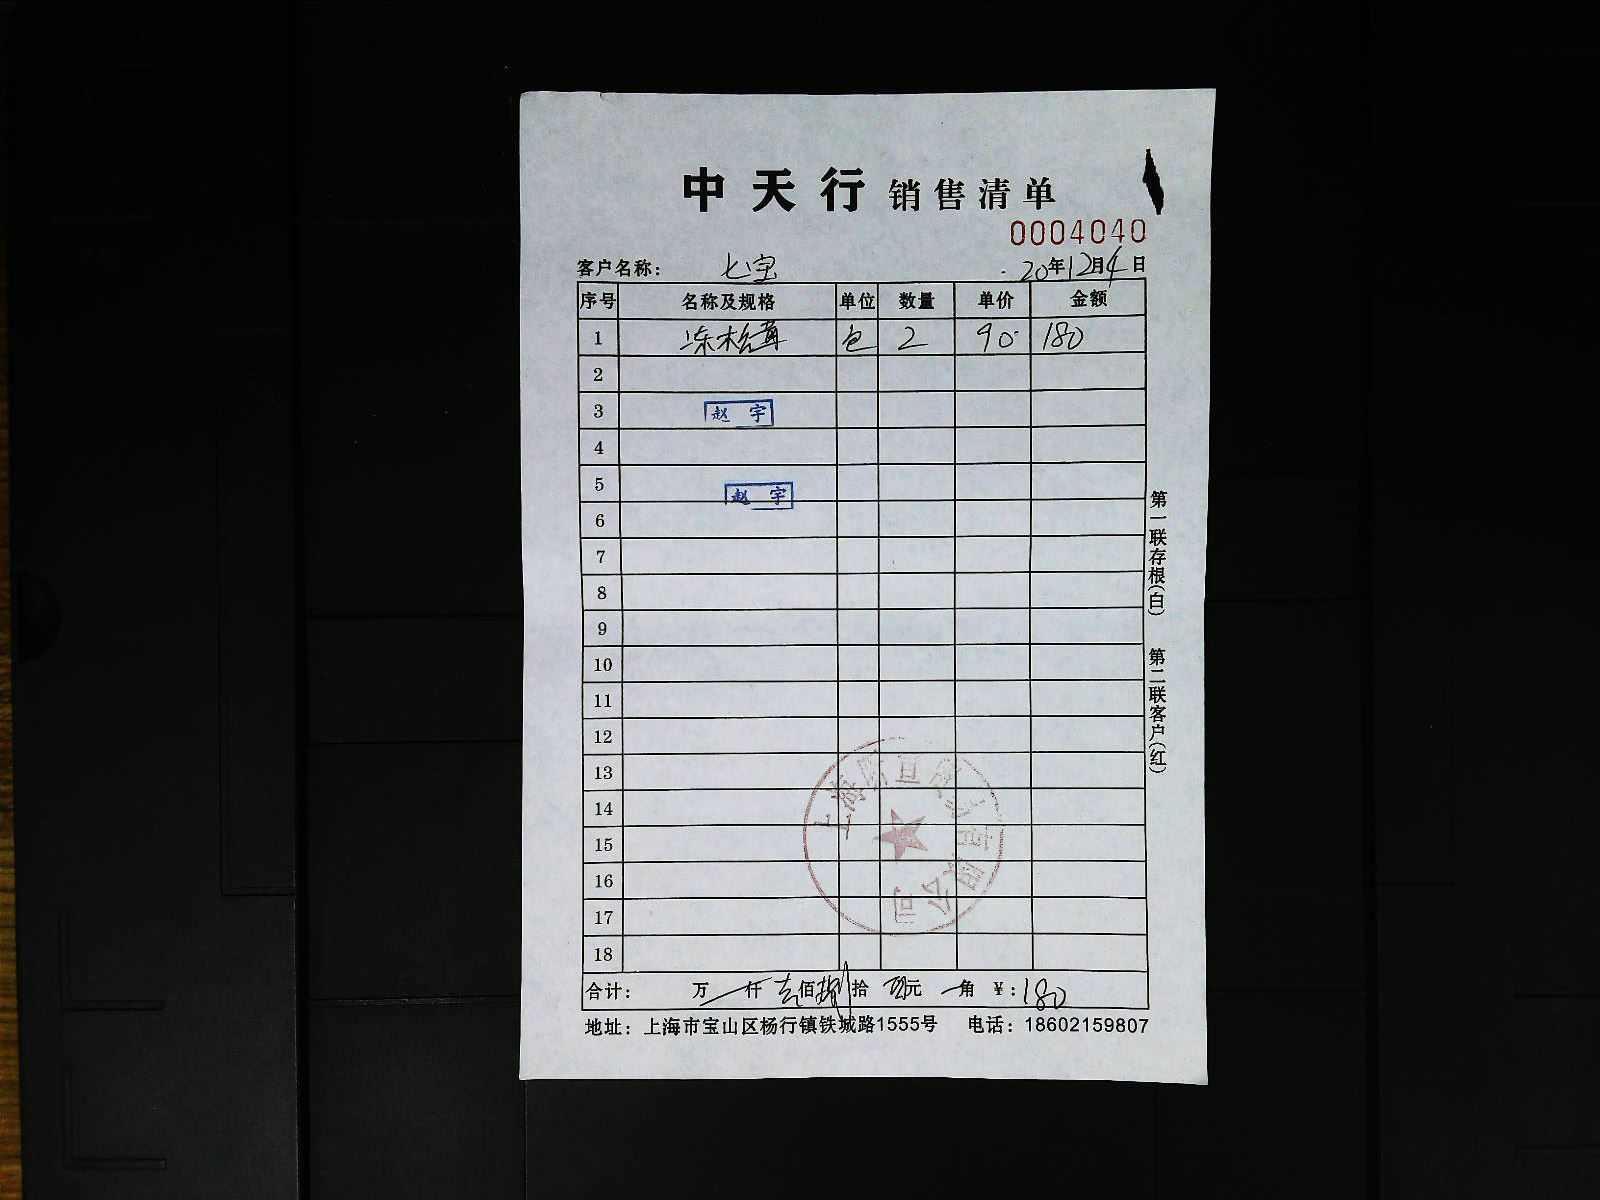 中天行 销售清单
0004040
客户名称: 七宝 20年12月4日
序号 名称及规格 单位 数量 单价 金额
1 冻松茸 包 2 90 180
2
3 赵 宇
4
5 赵 宇
6
7
8
9
10
11
12
13
14
15
16
17
18
合计: 万 仟 壹佰捌拾 元 角 ¥:180
地址: 上海市宝山区杨行镇铁城路1555号 电话: 18602159807
第一联存根(白) 第二联客户(红)
上海 有限公司